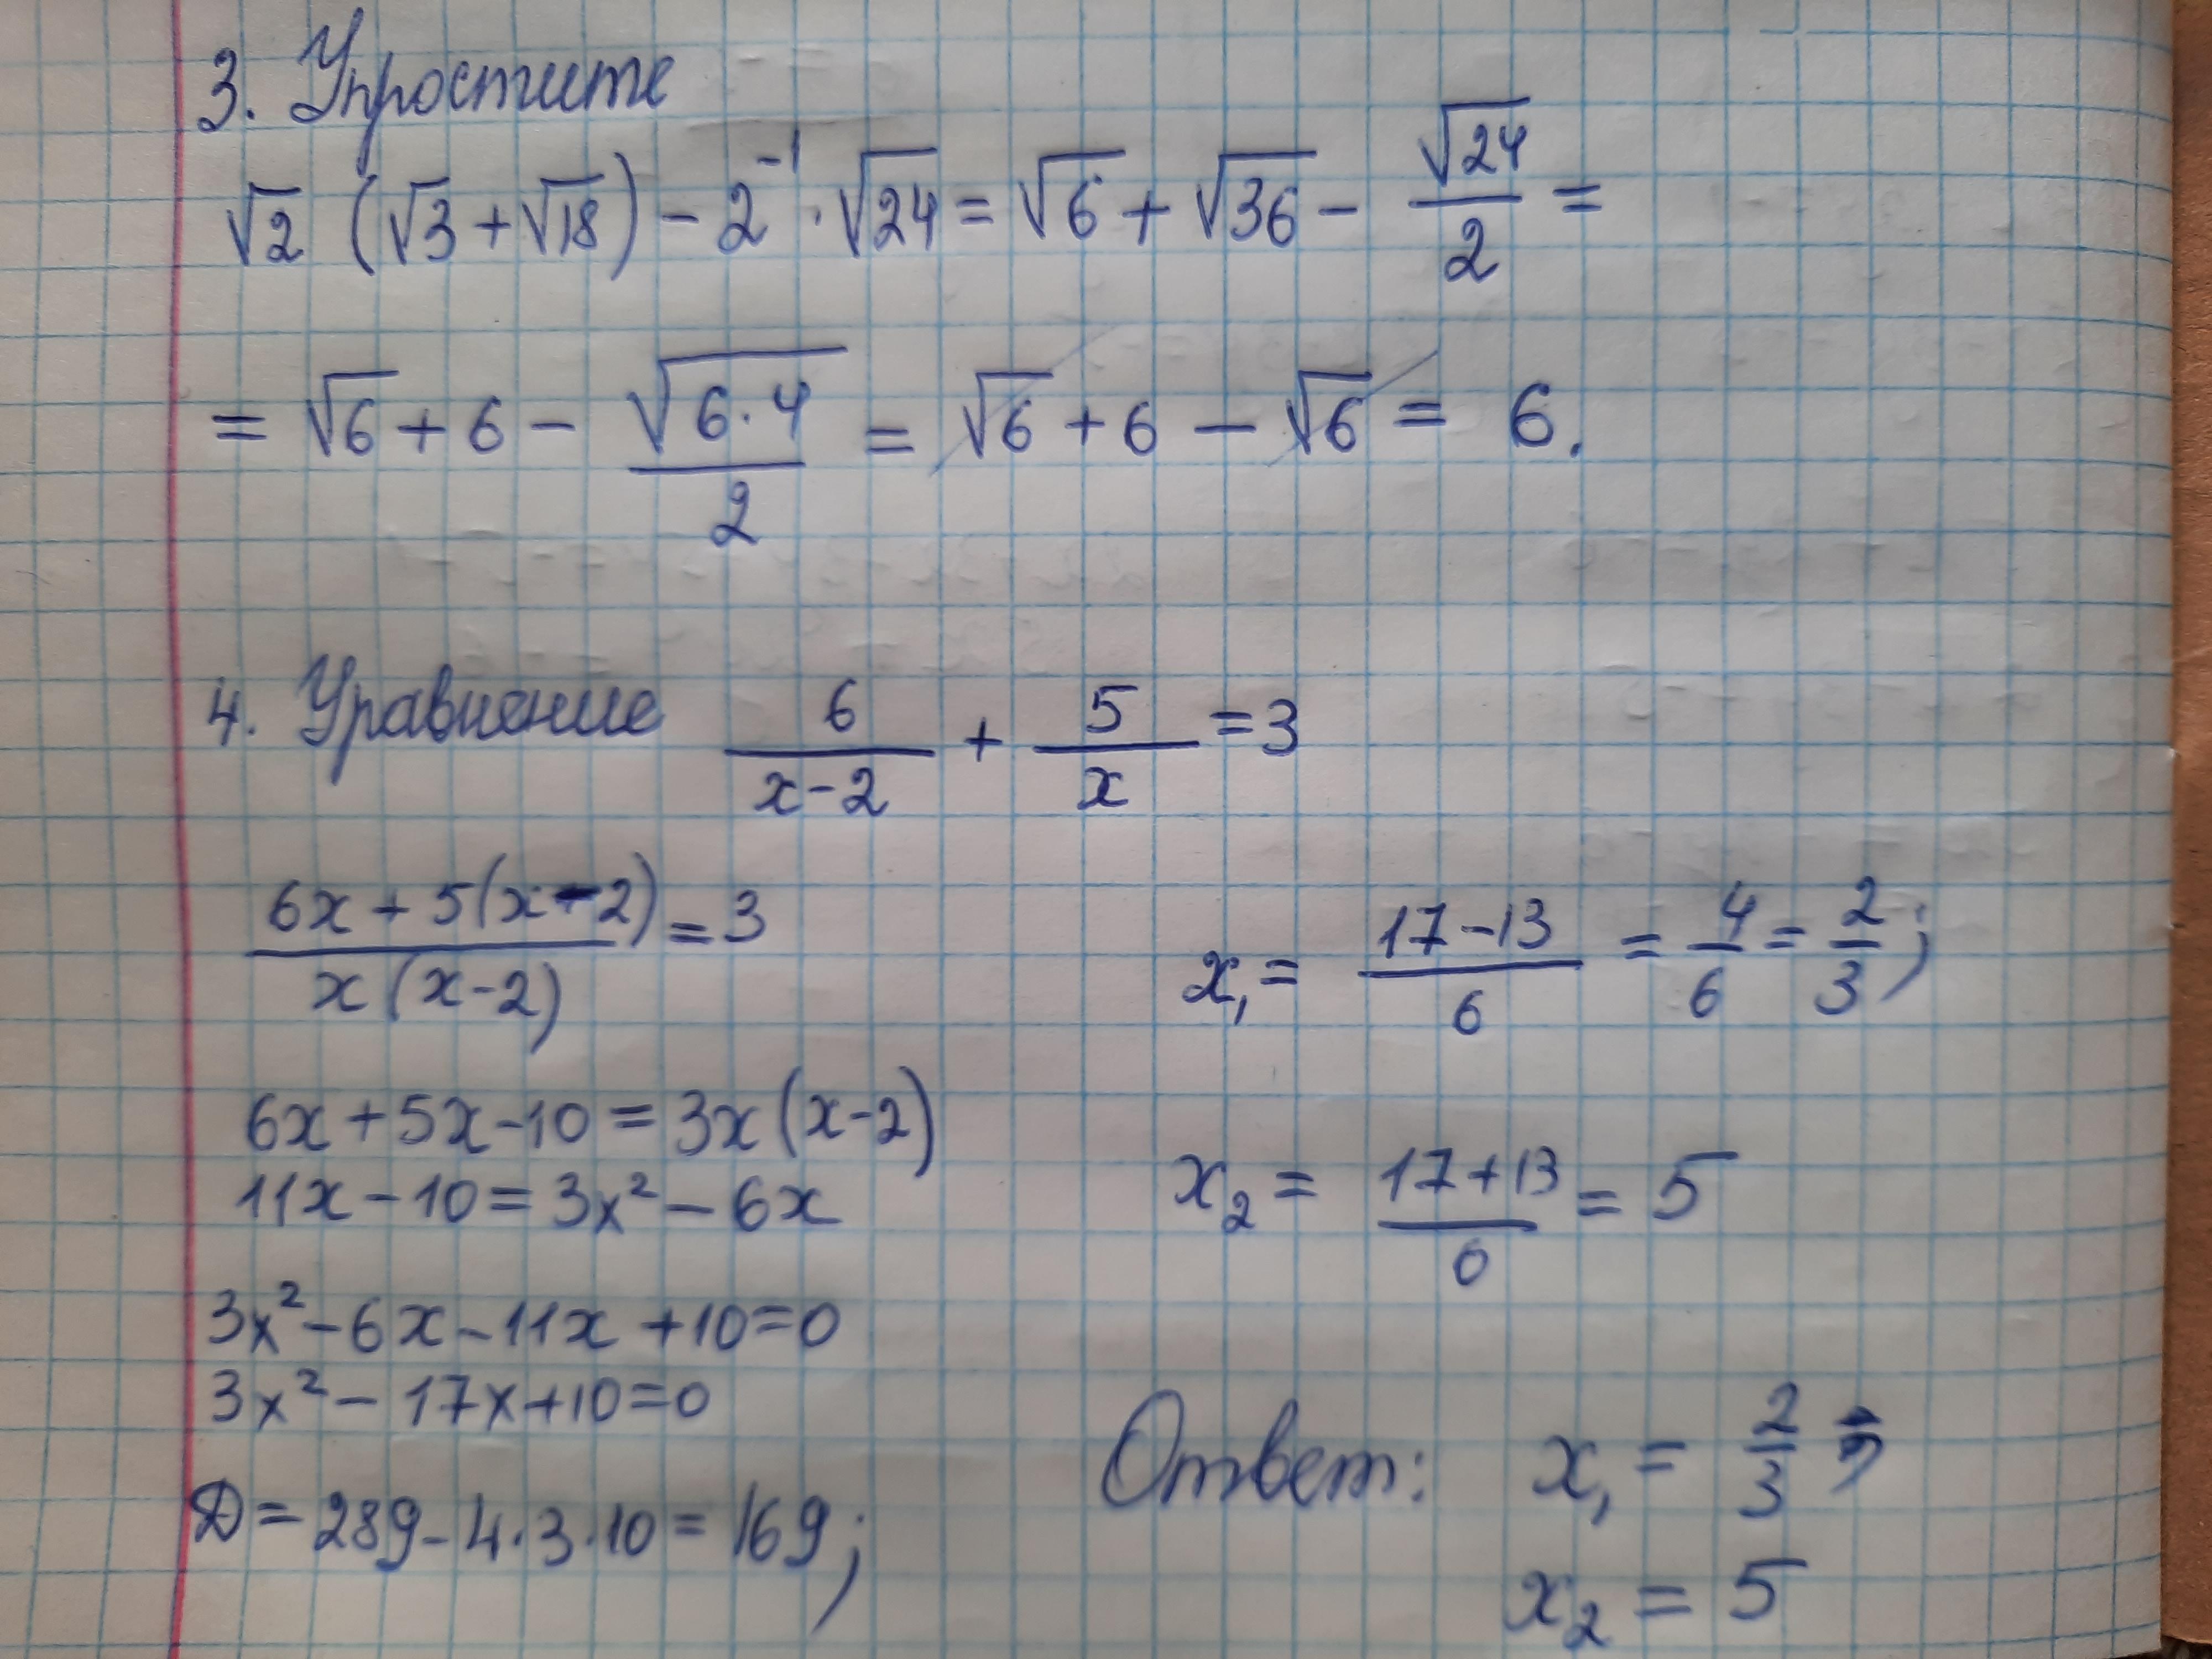 3. Упростите
√2 (√3 + √18) - 2⁻¹ · √24 = √6 + √36 - √24/2 =
= √6 + 6 - √(6·4)/2 = √6 + 6 - √6 = 6.
4. Уравнение 6/(x-2) + 5/x = 3
(6x + 5(x-2))/(x(x-2)) = 3
6x + 5x - 10 = 3x(x-2)
11x - 10 = 3x² - 6x
3x² - 6x - 11x + 10 = 0
3x² - 17x + 10 = 0
D = 289 - 4·3·10 = 169;
x₁ = (17-13)/6 = 4/6 = 2/3;
x₂ = (17+13)/6 = 5
Ответ: x₁ = 2/3;
x₂ = 5